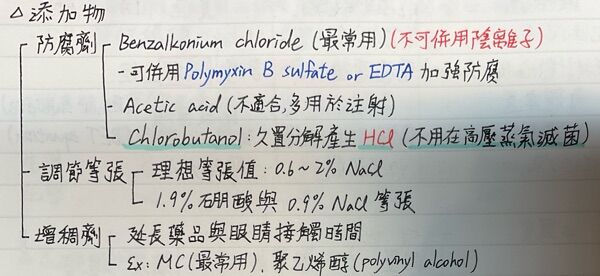 △添加物
防腐劑 Benzalkonium chloride (最常用) (不可併用陰離子)
-可併用 Polymyxin B sulfate or EDTA 加強防腐
Acetic acid (不適合,多用於注射)
Chlorobutanol:久置分解產生 HCl (不用在高壓蒸氣滅菌)
調節等張 理想等張值:0.6~2% NaCl
1.9%硼酸與 0.9% NaCl 等張
增稠劑 延長藥品與眼睛接觸時間
Ex: MC(最常用)、聚乙烯醇 (polyvinyl alcohol)